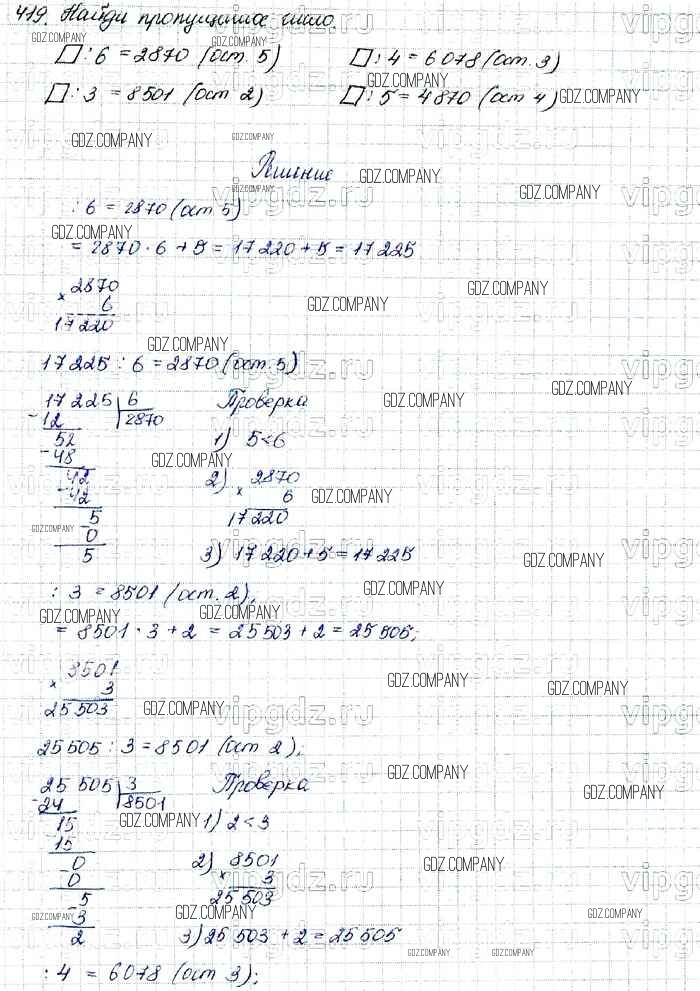 419. Найди пропущенное число.
□ : 6 = 2870 (ост. 5) □ : 4 = 6078 (ост. 3)
□ : 3 = 8501 (ост 2) □ : 5 = 4870 (ост 4)
Решение
: 6 = 2870 (ост 5)
= 2870 · 6 + 5 = 17 220 + 5 = 17 225
2870
× 6
17 220
17 225 : 6 = 2870 (ост. 5)
17 225 | 6 Проверка
- 12 | 2870
52 1) 5 < 6
- 48
42 2) 2870
- 42 × 6
5 17 220
- 0
5 3) 17 220 + 5 = 17 225
: 3 = 8501 (ост. 2),
= 8501 · 3 + 2 = 25 503 + 2 = 25 505;
8501
× 3
25 503
25 505 : 3 = 8501 (ост 2),
25 505 | 3 Проверка
- 24 | 8501
15 1) 2 < 3
- 15
0 2) 8501
- 0 × 3
5 25 503
- 3
2 3) 25 503 + 2 = 25 505
: 4 = 6078 (ост 3);
GDZ.COMPANY
vipgdz.ru